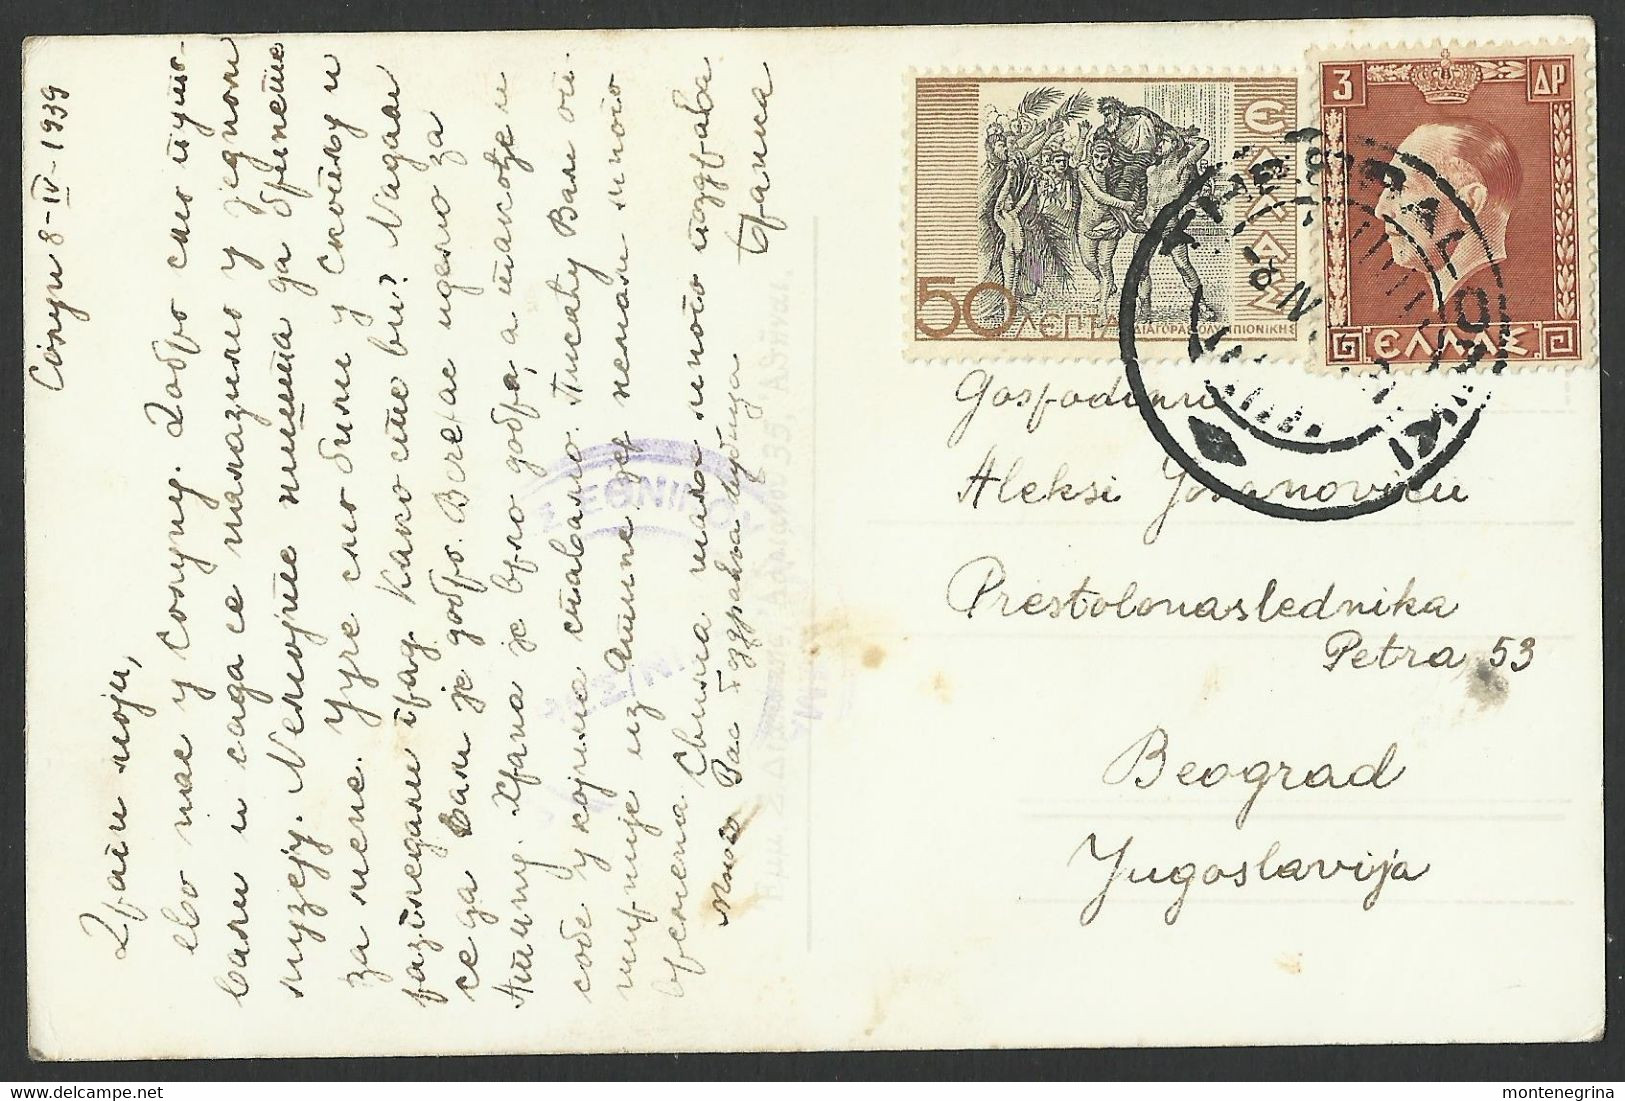 Солун 8-IV-1939
Драги моји,
Ево нас у Солуну. Добро смо путо-
вали и сада се налазимо у једном
музеју. Немојте ништа да бринете
за мене. Јуче смо били у Скопљу и
разгледали град. Како сте ви? Надам
се да Вам је добро. Вечерас идемо за
Атину. Храна је врло добра, а такође и
собе у којима спавамо. Писаћу Вам оп-
ширније из Атине јер немам много
времена. Свима мала много поздрава
много Вас поздравља и љуби
Бранка
50 ΛΕΠΤΑ
ΔΙΑΓΟΡΑΣ ΟΛΥΜΠΙΟΝΙΚΗΣ
ΕΛΛΑΣ
3 ΔΡ
ΕΛΛΑΣ
8 IV
Gospodinu
Aleksi Jovanoviću
Prestolonaslednika
Petra 53
Beograd
Jugoslavija
montenegrina